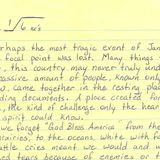 1/√6 ex's
rhaps the most tragic event of Jan
focal point was lost. Many things
, this country may never truly und
assive amount of people, known only
w, came together in the resting pla
ding documents. A place created for
, the kind of challenges only the hear
spirit could know.
we forget "God Bless America" from the
rairies, to the oceans white with fo
attle cries meant we would and w
ed tears because of enemies o